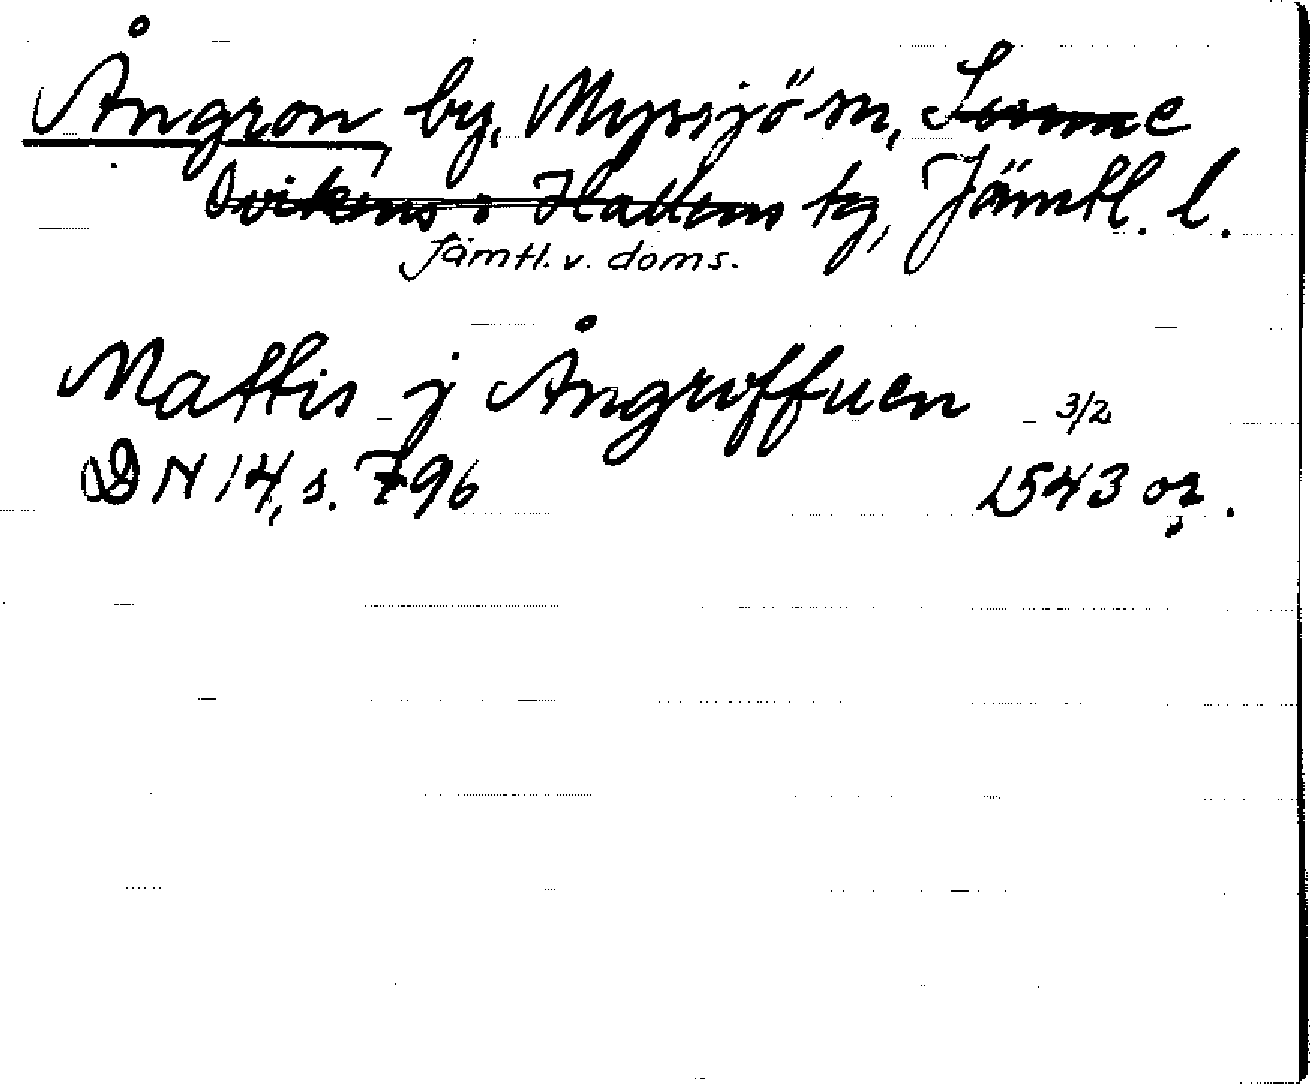 Ångron, by, Myrsjö sn, Sunne
Ovikens o Hallens tg, Jämtl. l.
Jämtl. v. doms.
Mattis j Ångroffuen 3/2
DN 14, s. 796 1543 or.